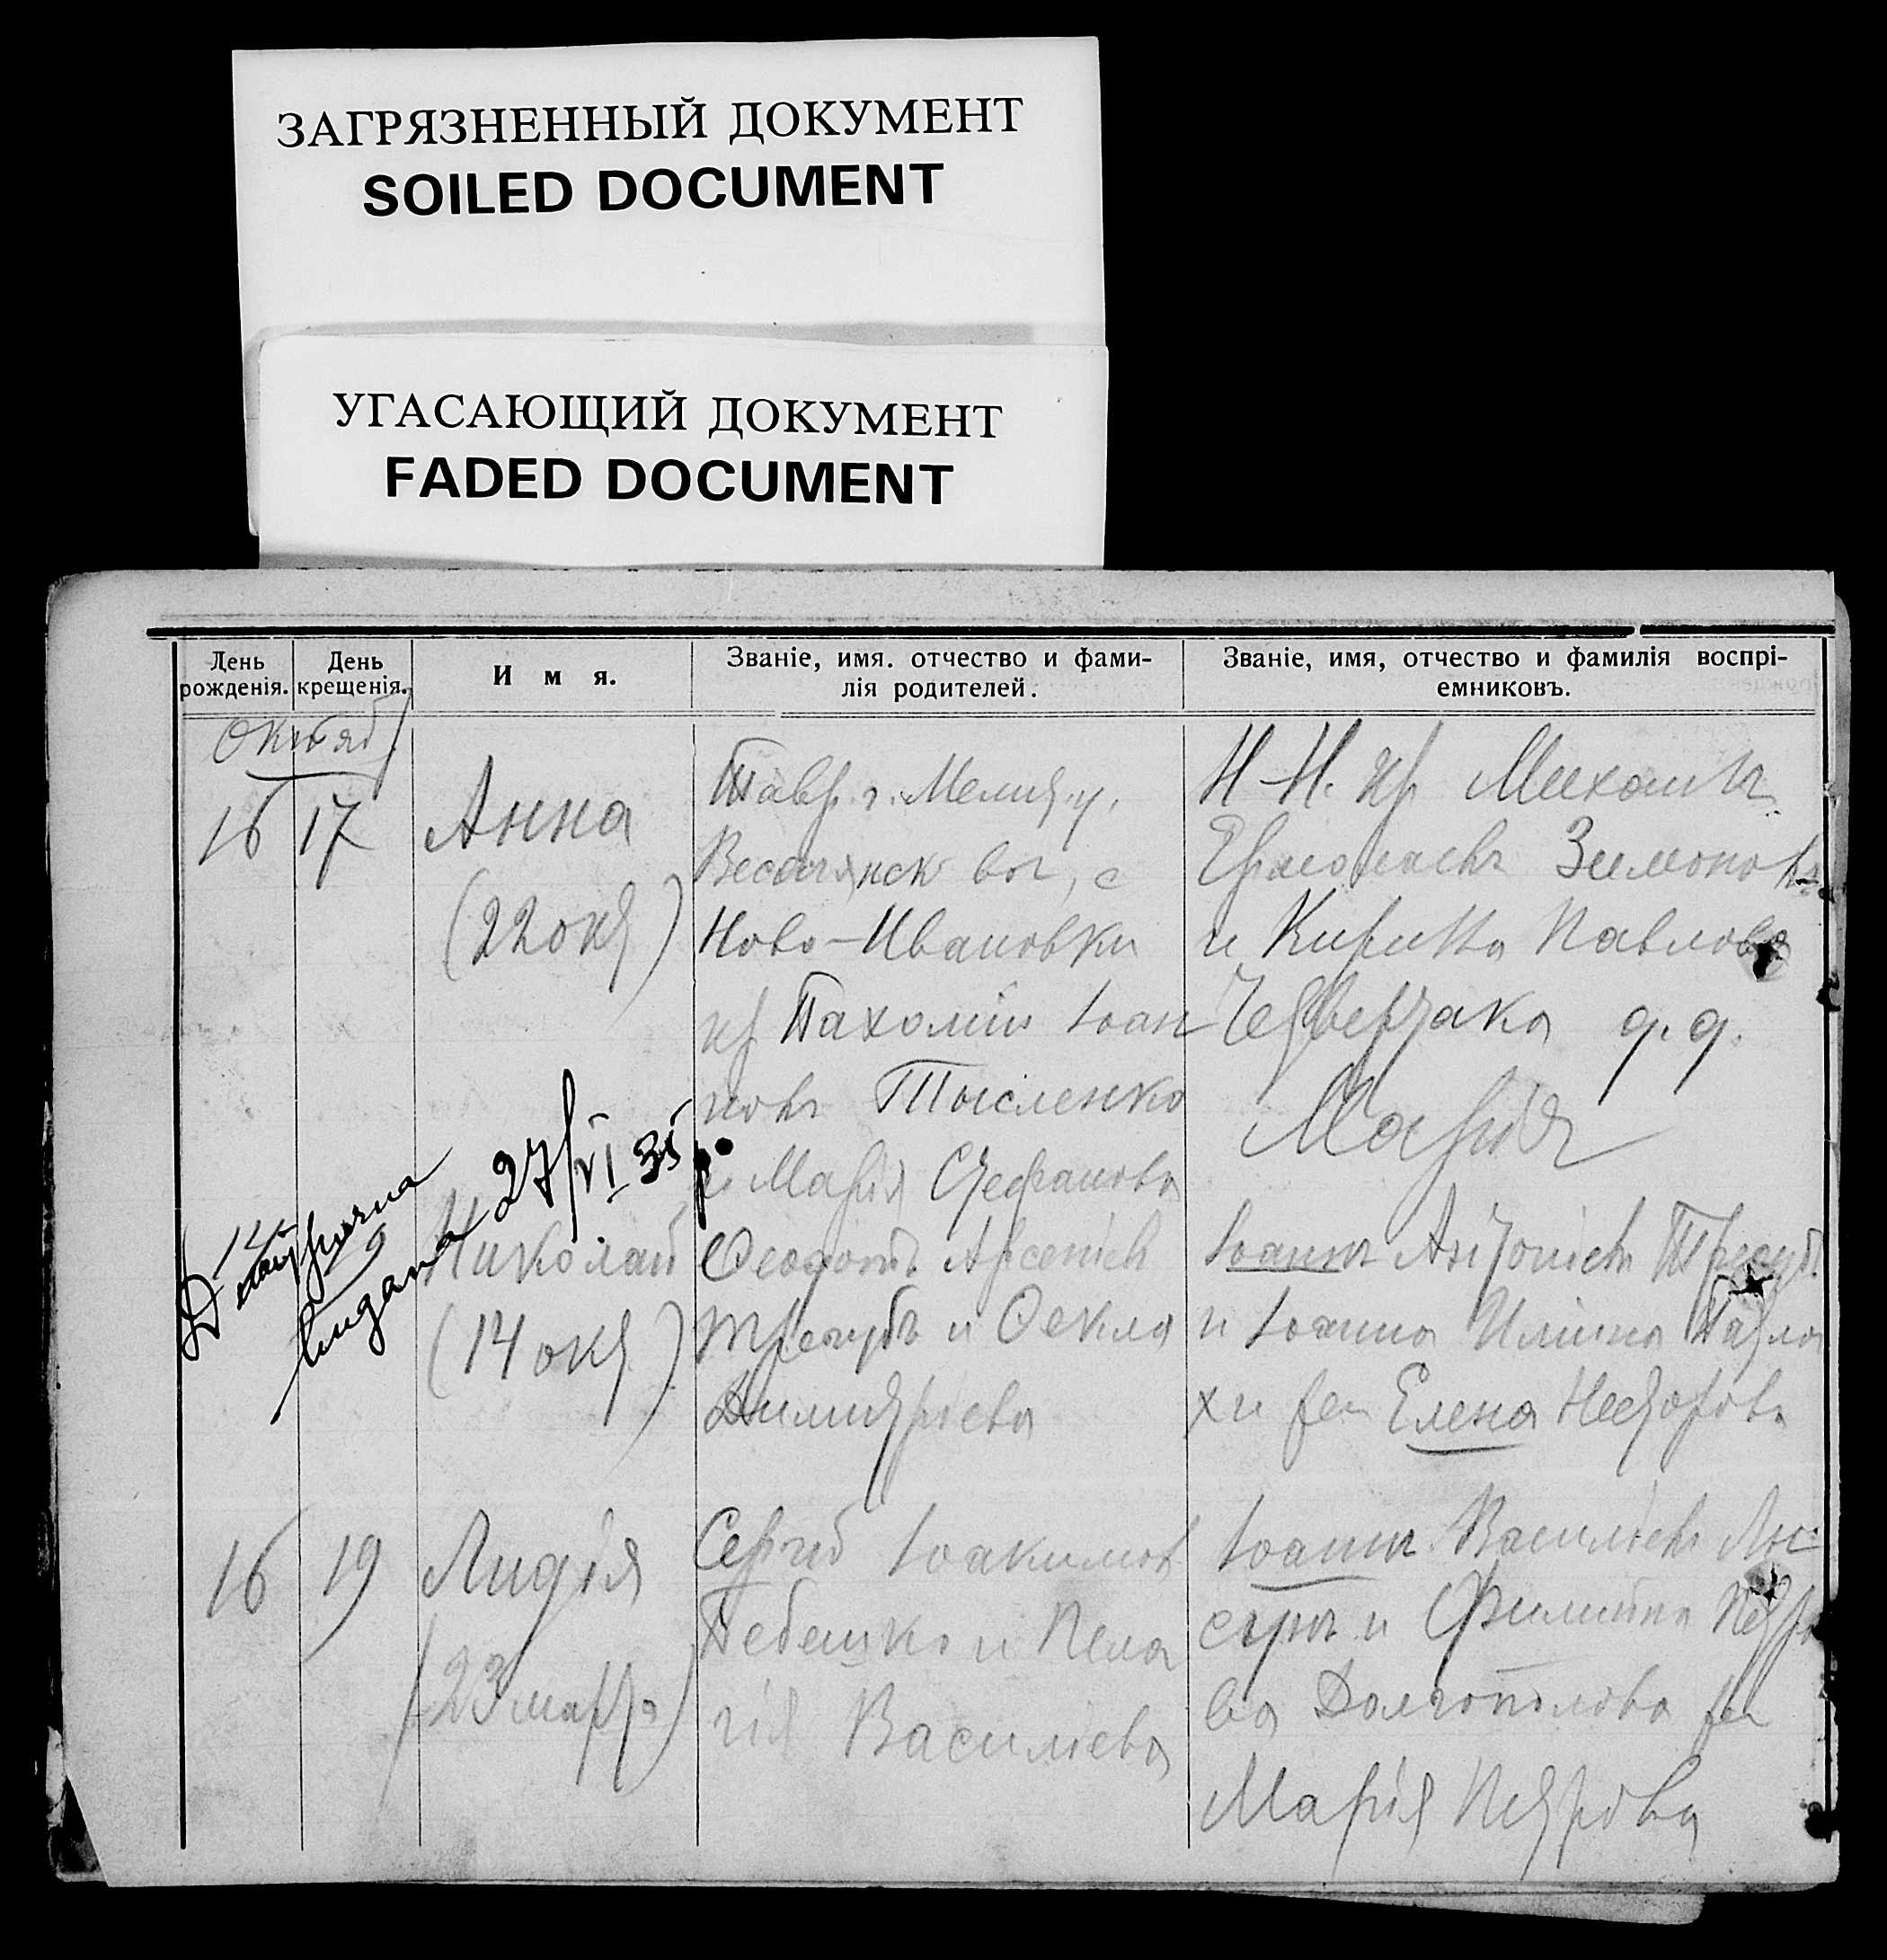 ЗАГРЯЗНЕННЫЙ ДОКУМЕНТ
SOILED DOCUMENT
УГАСАЮЩИЙ ДОКУМЕНТ
FADED DOCUMENT
День рожденія.
День крещенія.
И м я.
Званіе, имя. отчество и фами-
лія родителей.
Званіе, имя, отчество и фамилія воспрі-
емниковъ.
Октяб.
16 17 Анна
(22 окт)
Тавр. г. Мелит. у.
вол, с
Ново-Ивановки
кр Пахомій Іоан
новъ Тысленко
и Марія Стефанова
Н-Н. кр Михаилъ
Ермолаевъ Зимоно
и Кирилла Павлова
Четвертака д. д.
Марія
Метрична
видана 27/VI 35 р.
Николай
(14 окт)
Ѳеодотъ Арсеніев
Трегубъ и Ѳекла
Димитріева
Іоаннъ Антоніевъ Трегуб
и Іоанна Иліина
Елена Несторова
16 19 Лидія
(23 марта)
Сергій Іоакимов
и Пела
гія Василіева
Іоаннъ Василіевъ Ли-
и Филиппа Петро
ва Долгополова
Марія Петрова